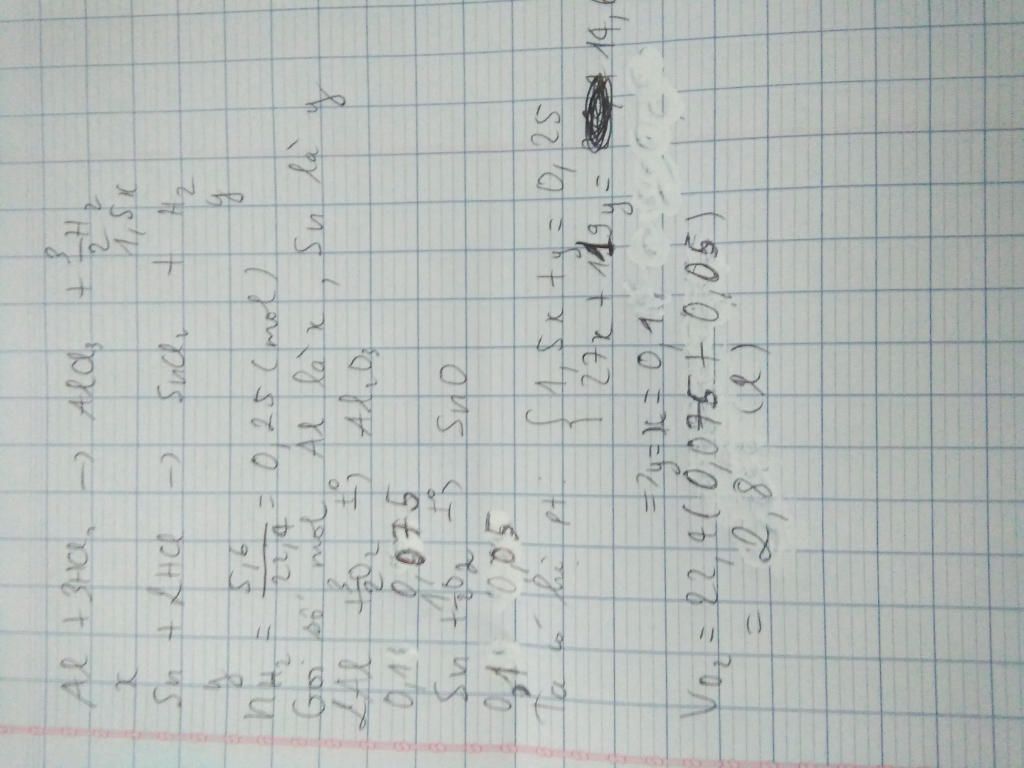 Al + 3HCl → AlCl₃ + 3/2 H₂
x 1,5x
Sn + 2HCl → SnCl₂ + H₂
y y
nH₂ = 5,6/22,4 = 0,25 (mol)
Gọi số mol Al là x, Sn là y
2Al + 3/2O₂ t° → Al₂O₃
0,1 0,075
Sn + 1/2O₂ t° → SnO
0,1 0,05
Ta có hệ pt { 1,5x + y = 0,25
27x + 119y = 14,6
=> y = x = 0,1
V O₂ = 22,4 (0,075 + 0,05)
= 2,8 (l)